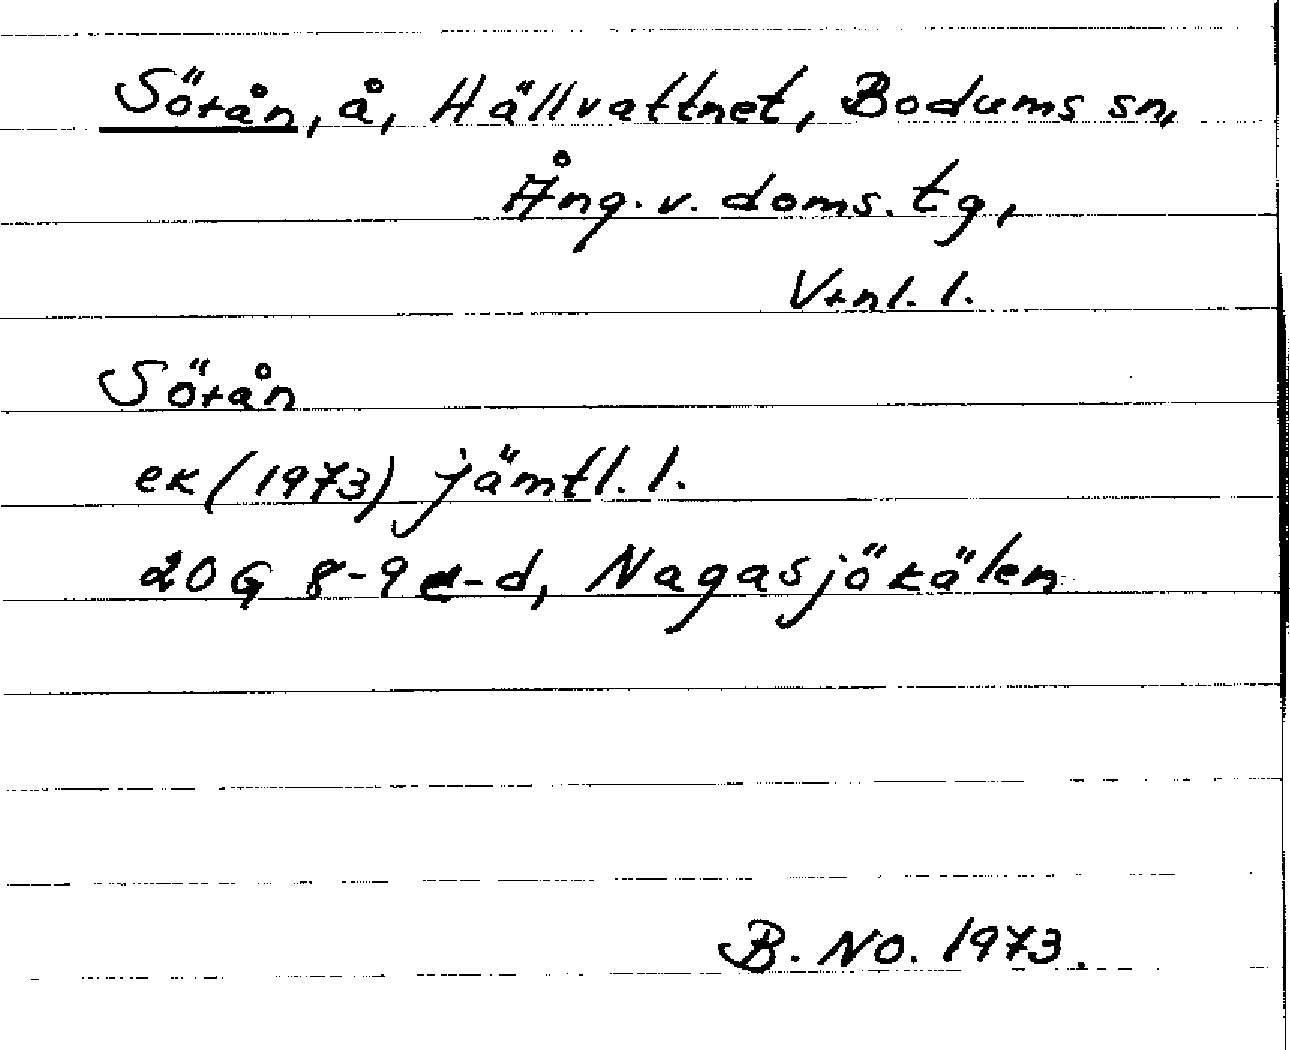 Sörån, å, Hällvattnet, Bodums sn,
Ång. v. doms. tg,
Vrnl. l.
Sörån
ek (1973) jämtl. l.
20G 8-9 c-d, Nagasjökälen
B. NO. 1973.